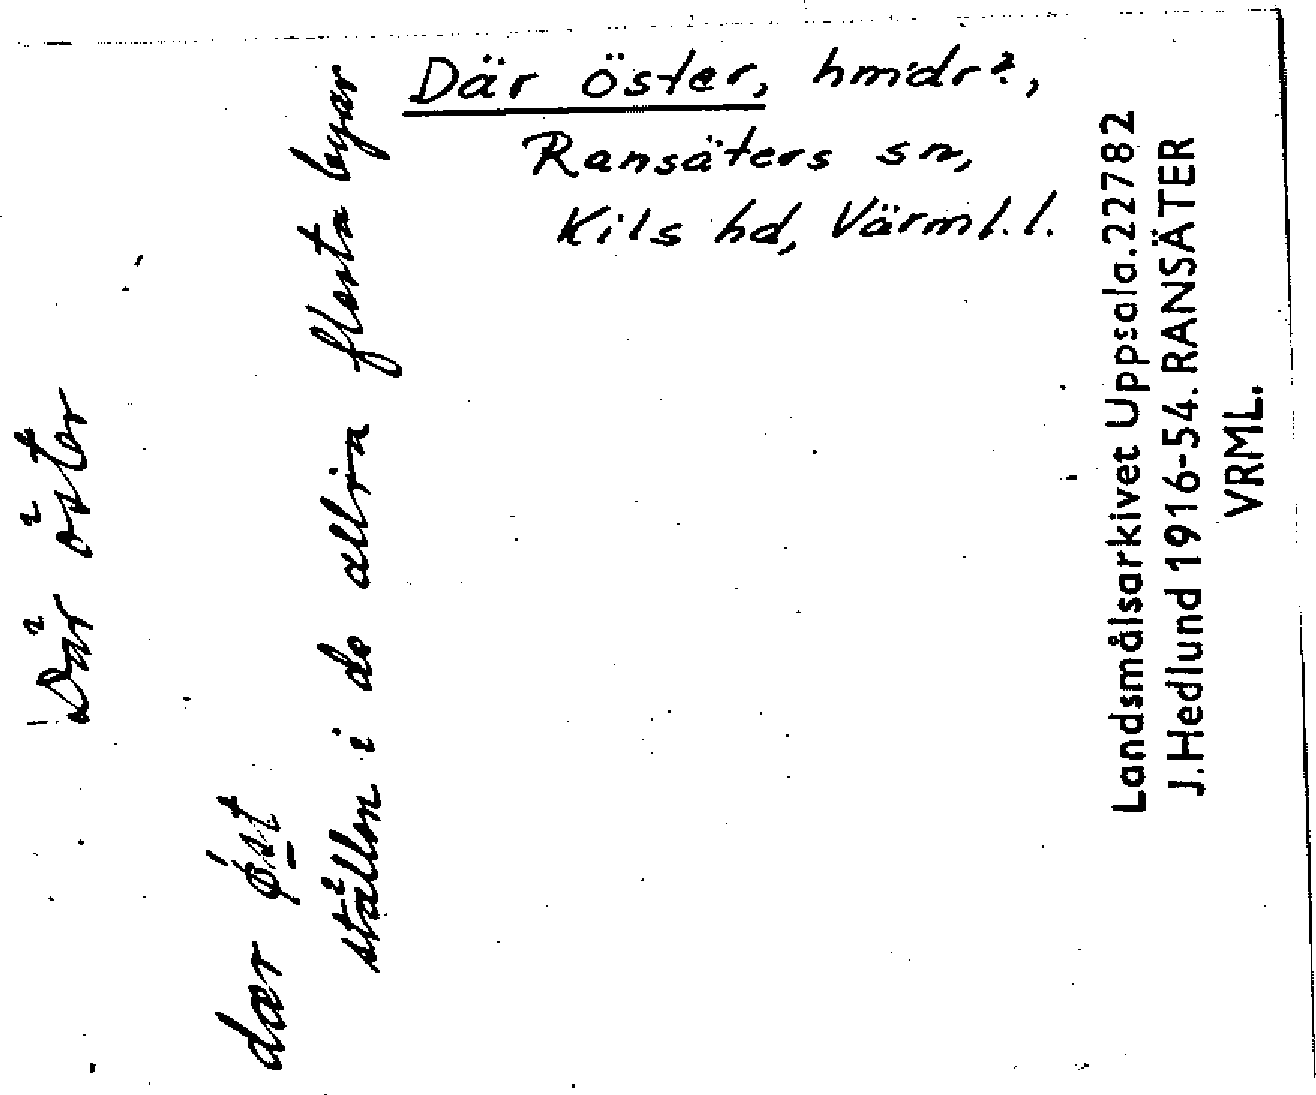 Där öster, hmdr?,
Ransäters sn,
Kils hd, Värml. l.
Där öster
dær øst
ställen i de allra flesta byar
Landsmålsarkivet Uppsala. 22782
J. Hedlund 1916-54. RANSÄTER
VRML.